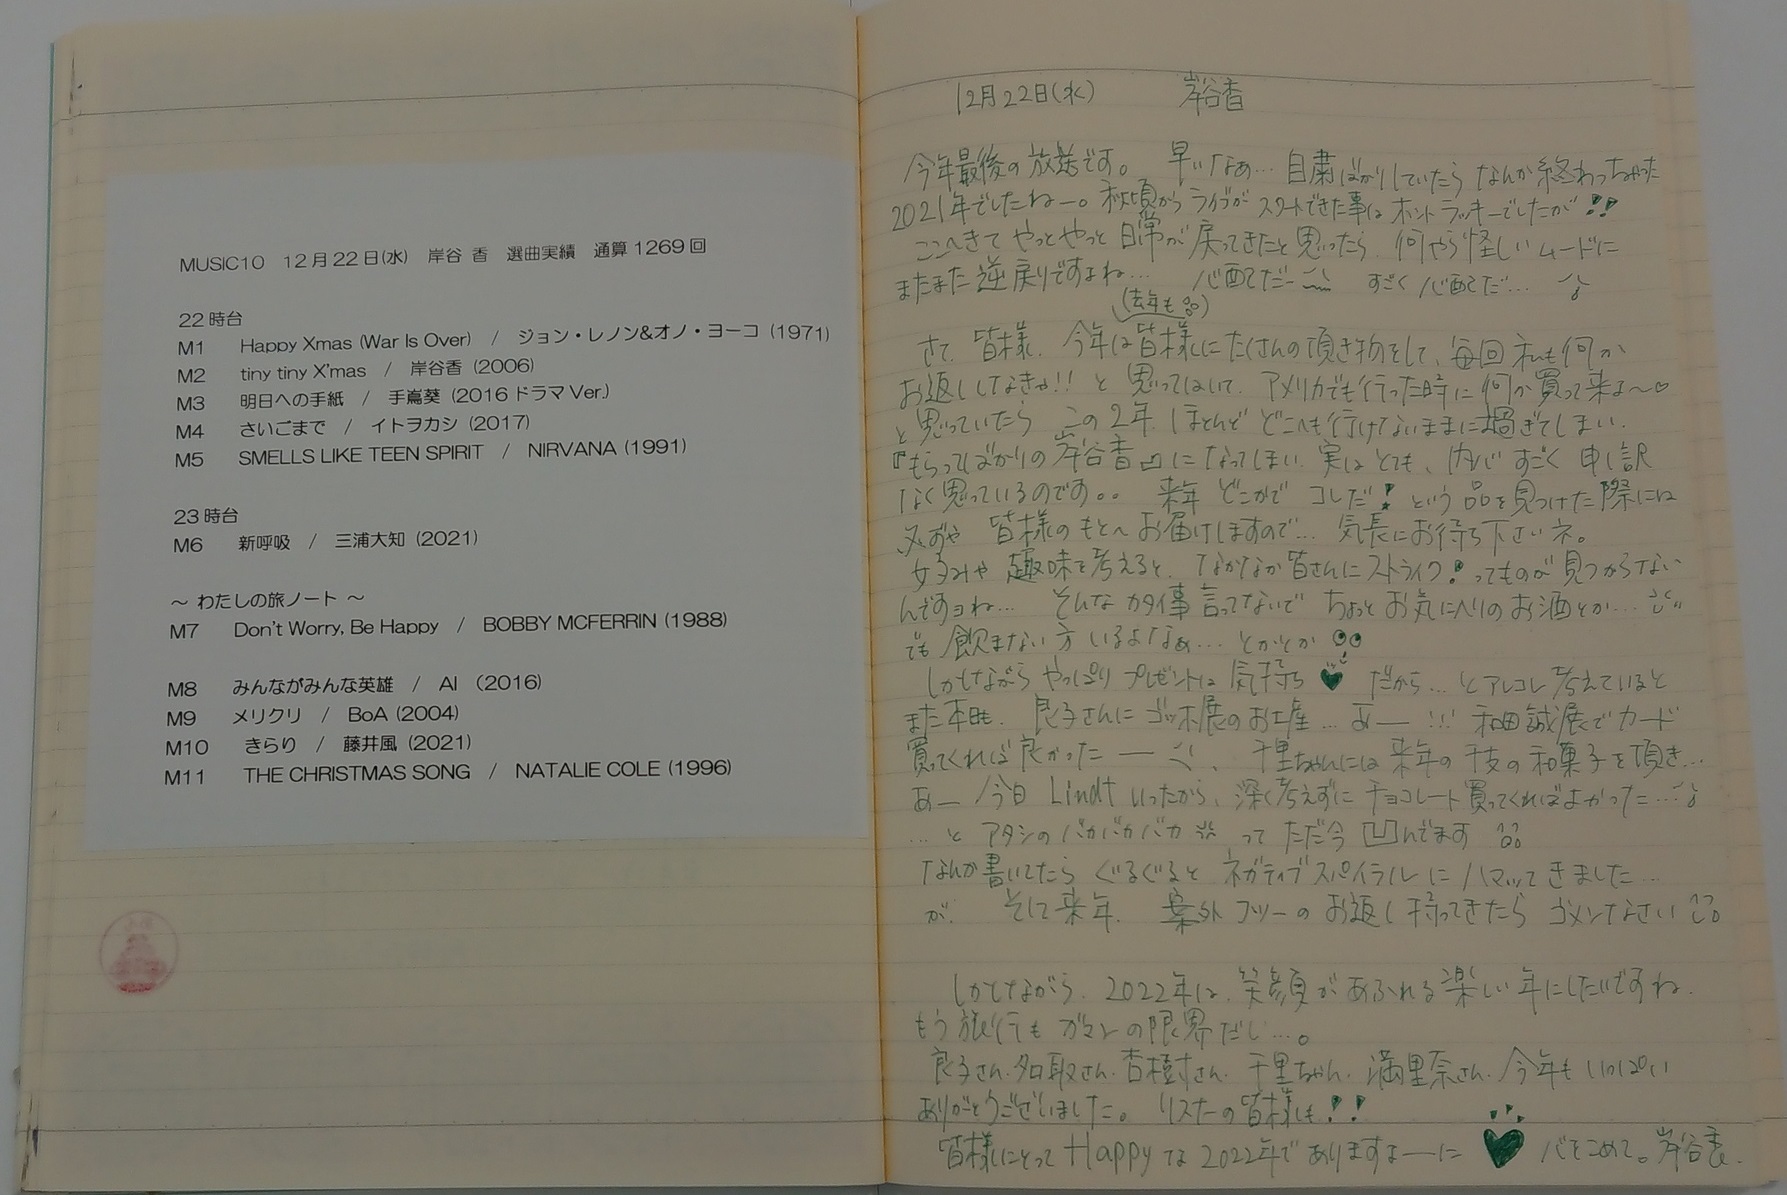 MUSIC10 12月22日(水) 岸谷 香 選曲実績 通算1269回
22時台
M1 Happy Xmas (War Is Over) / ジョン・レノン&オノ・ヨーコ (1971)
M2 tiny tiny X'mas / 岸谷香 (2006)
M3 明日への手紙 / 手嶌葵 (2016 ドラマ Ver.)
M4 さいごまで / イトヲカシ (2017)
M5 SMELLS LIKE TEEN SPIRIT / NIRVANA (1991)
23時台
M6 新呼吸 / 三浦大知 (2021)
~ わたしの旅ノート ~
M7 Don't Worry, Be Happy / BOBBY MCFERRIN (1988)
M8 みんながみんな英雄 / AI (2016)
M9 メリクリ / BoA (2004)
M10 きらり / 藤井風 (2021)
M11 THE CHRISTMAS SONG / NATALIE COLE (1996)
12月22日(水) 岸谷香
今年最後の放送です。 早いなぁ… 自粛ばかりしていたらなんか終わっちゃった
2021年でしたねー。秋頃からライブがスタートできた事はホントラッキーでしたが!!
ここへきて やっとやっと 日常が戻ってきたと思ったら 何やら怪しいムードに
またまた逆戻りですよね… 心配だー すごく心配だ…
(去年も)
さて、皆様、今年は皆様にたくさんの頂き物をして、毎回私も何か
お返ししなきゃ!! と 思ってはいて、アメリカでも行った時に何か買って来よ〜♡
と思っていたら この2年、ほとんど どこへも行けないままに過ぎてしまい、
『もらってばかりの岸谷香』になってしまい、実はとても、内心すごく 申し訳
なく思っているのです。。 来年どこかで コレだ! という品を見つけた際には
必ずや 皆様のもとへお届けしますので… 気長にお待ち下さいネ。
好みや 趣味を考えると、なかなか皆さんにストライク! ってものが見つからない
んですヨね… そんなカタイ事言ってないで ちょっとお気に入りのお酒とか…
でも 飲まない方いるよなぁ… とかとか
しかしながら やっぱり プレゼントは 気持ち♥ だから… とアレコレ考えていると
また本日も、良子さんにゴッホ展のお土産… あー!!! 和田誠展でカード
買ってくれば良かったー 、千里ちゃんには来年の干支の和菓子を頂き…
あー 今日 Lindt いったから、深く考えずに チョコレート買ってくればよかった…
…と アタシのバカバカバカ って ただ今 凹んでます
なんか書いてたら ぐるぐると ネガティブスパイラルに ハマッてきました…
が、 そして来年、 案外 フツーのお返し持ってきたら ゴメンなさい
しかしながら、2022年は、笑顔があふれる楽しい年にしたいですね、
もう旅行も ガマンの限界だし…。
良子さん、名取さん、杏樹さん、千里ちゃん、満里奈さん、今年もいっぱい
ありがとうございました。 リスナーの皆様も!!
皆様にとって Happy な 2022年でありますよーに ♥ 心をこめて。岸谷香